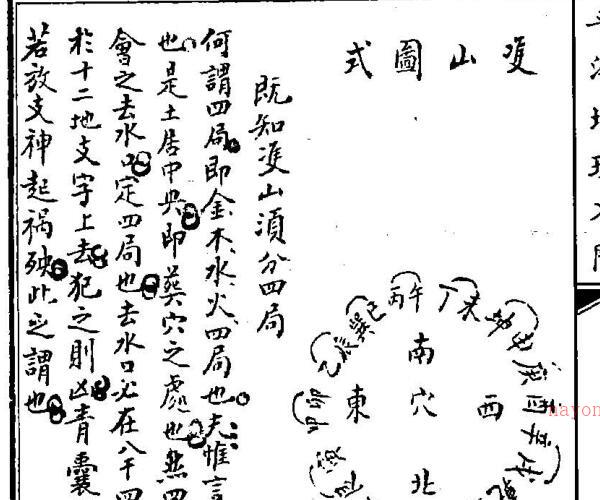 雙山圖式
巳丙午丁未坤
乙辰巽
庚酉辛戌
甲卯
南
東 穴 西
北
既知雙山須分四局
何謂四局即金木水火四局也夫惟言
也是土居中央即葬穴之處也然四
會之去水口定四局也去水口必在八干四
於十二地支字上去犯之則凶青囊
若放支神起禍殃此之謂也
nayon